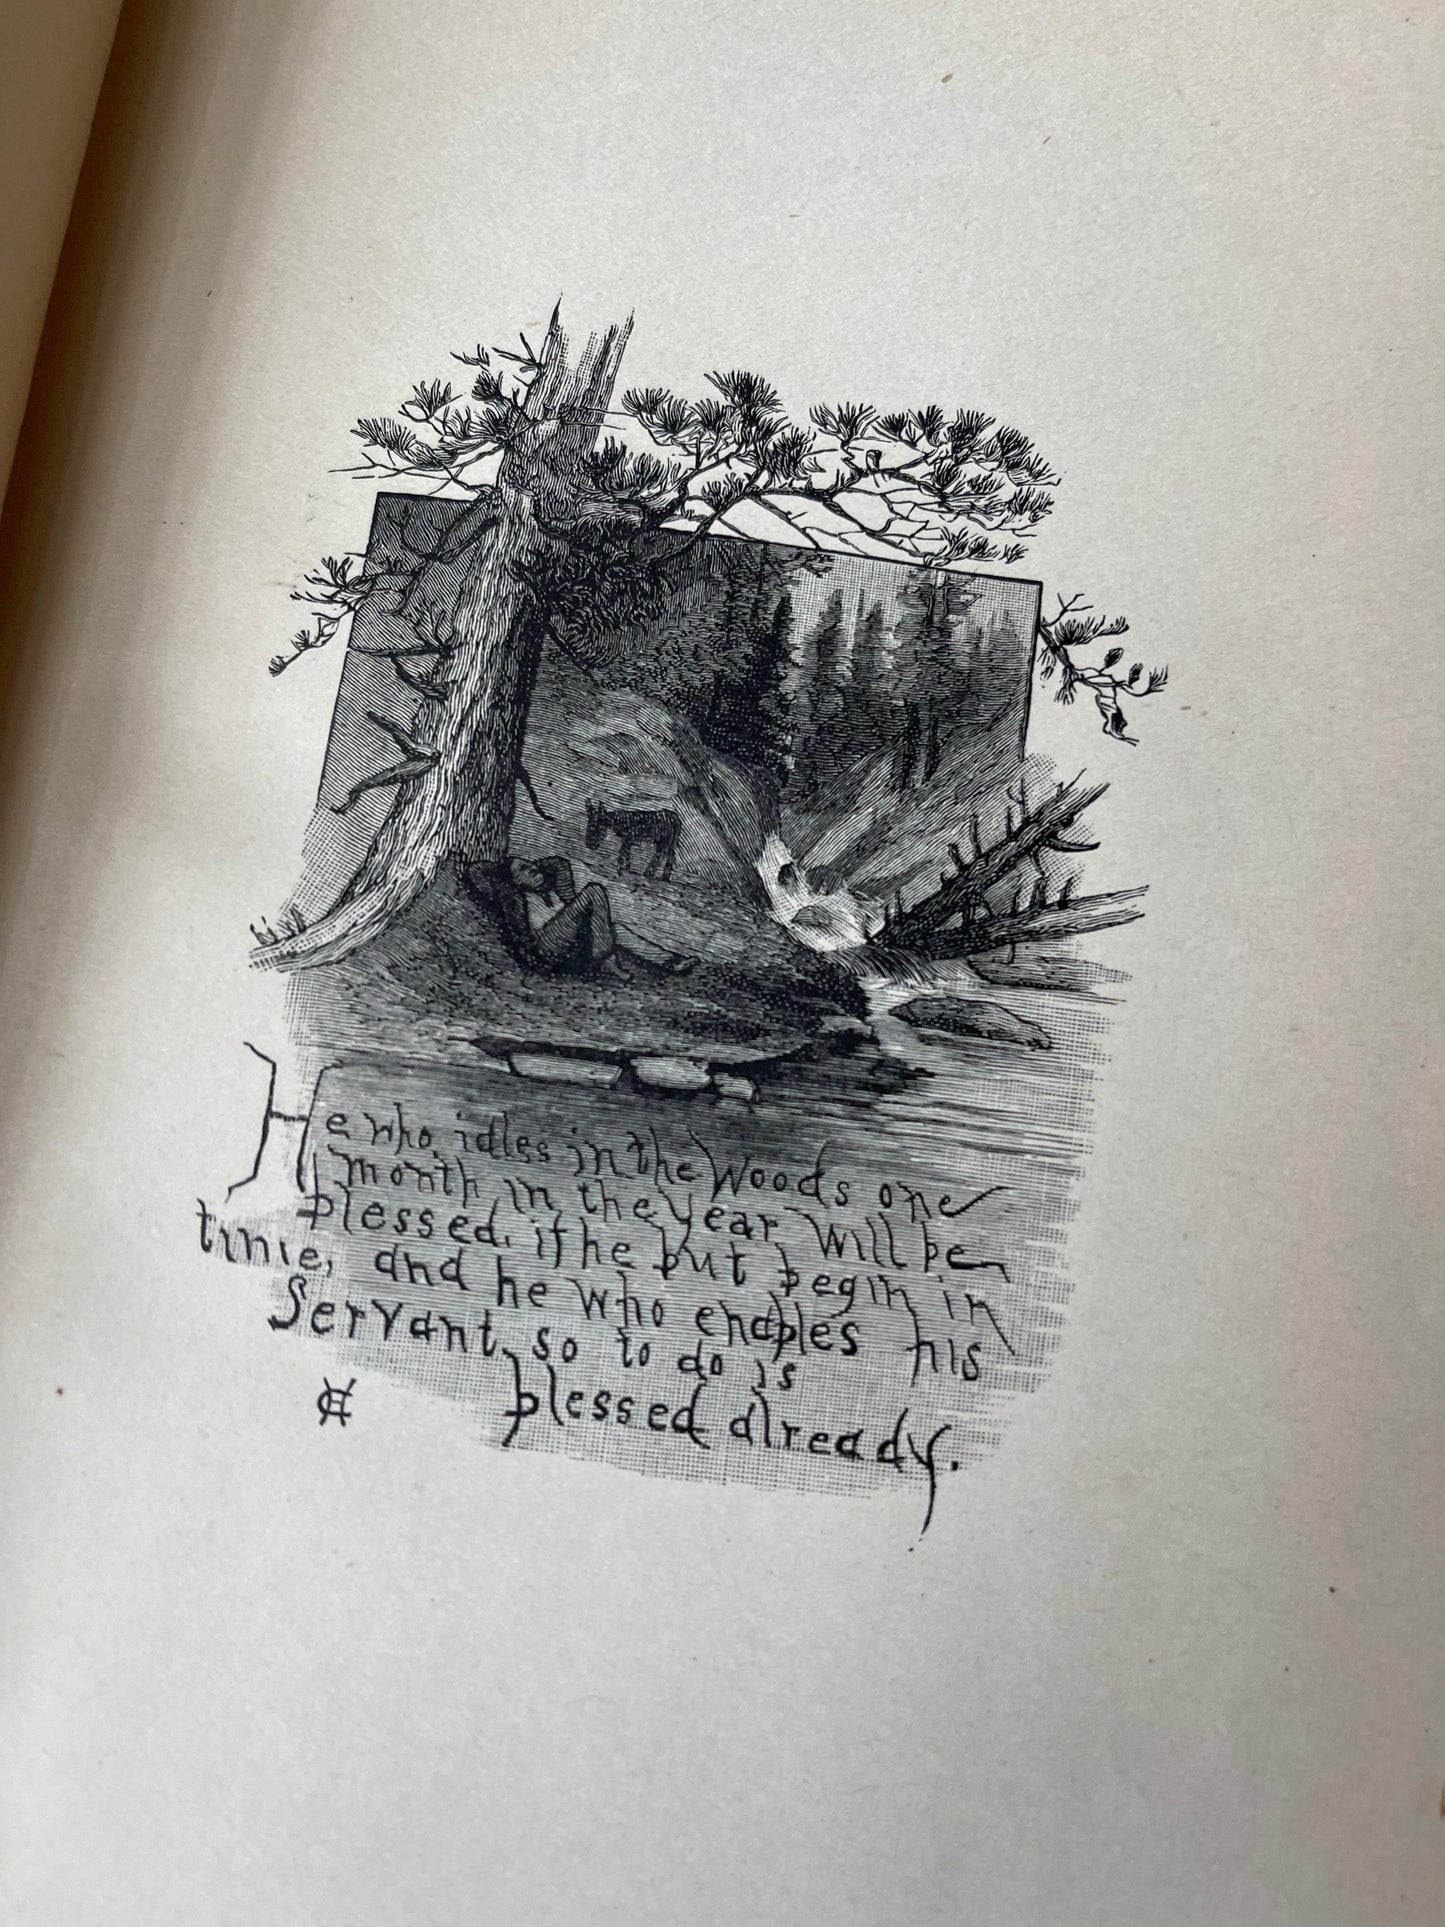 He who idles in the Woods one
month in the year will be
blessed, if he but begin in
time, and he who enables his
Servant so to do is
blessed already.